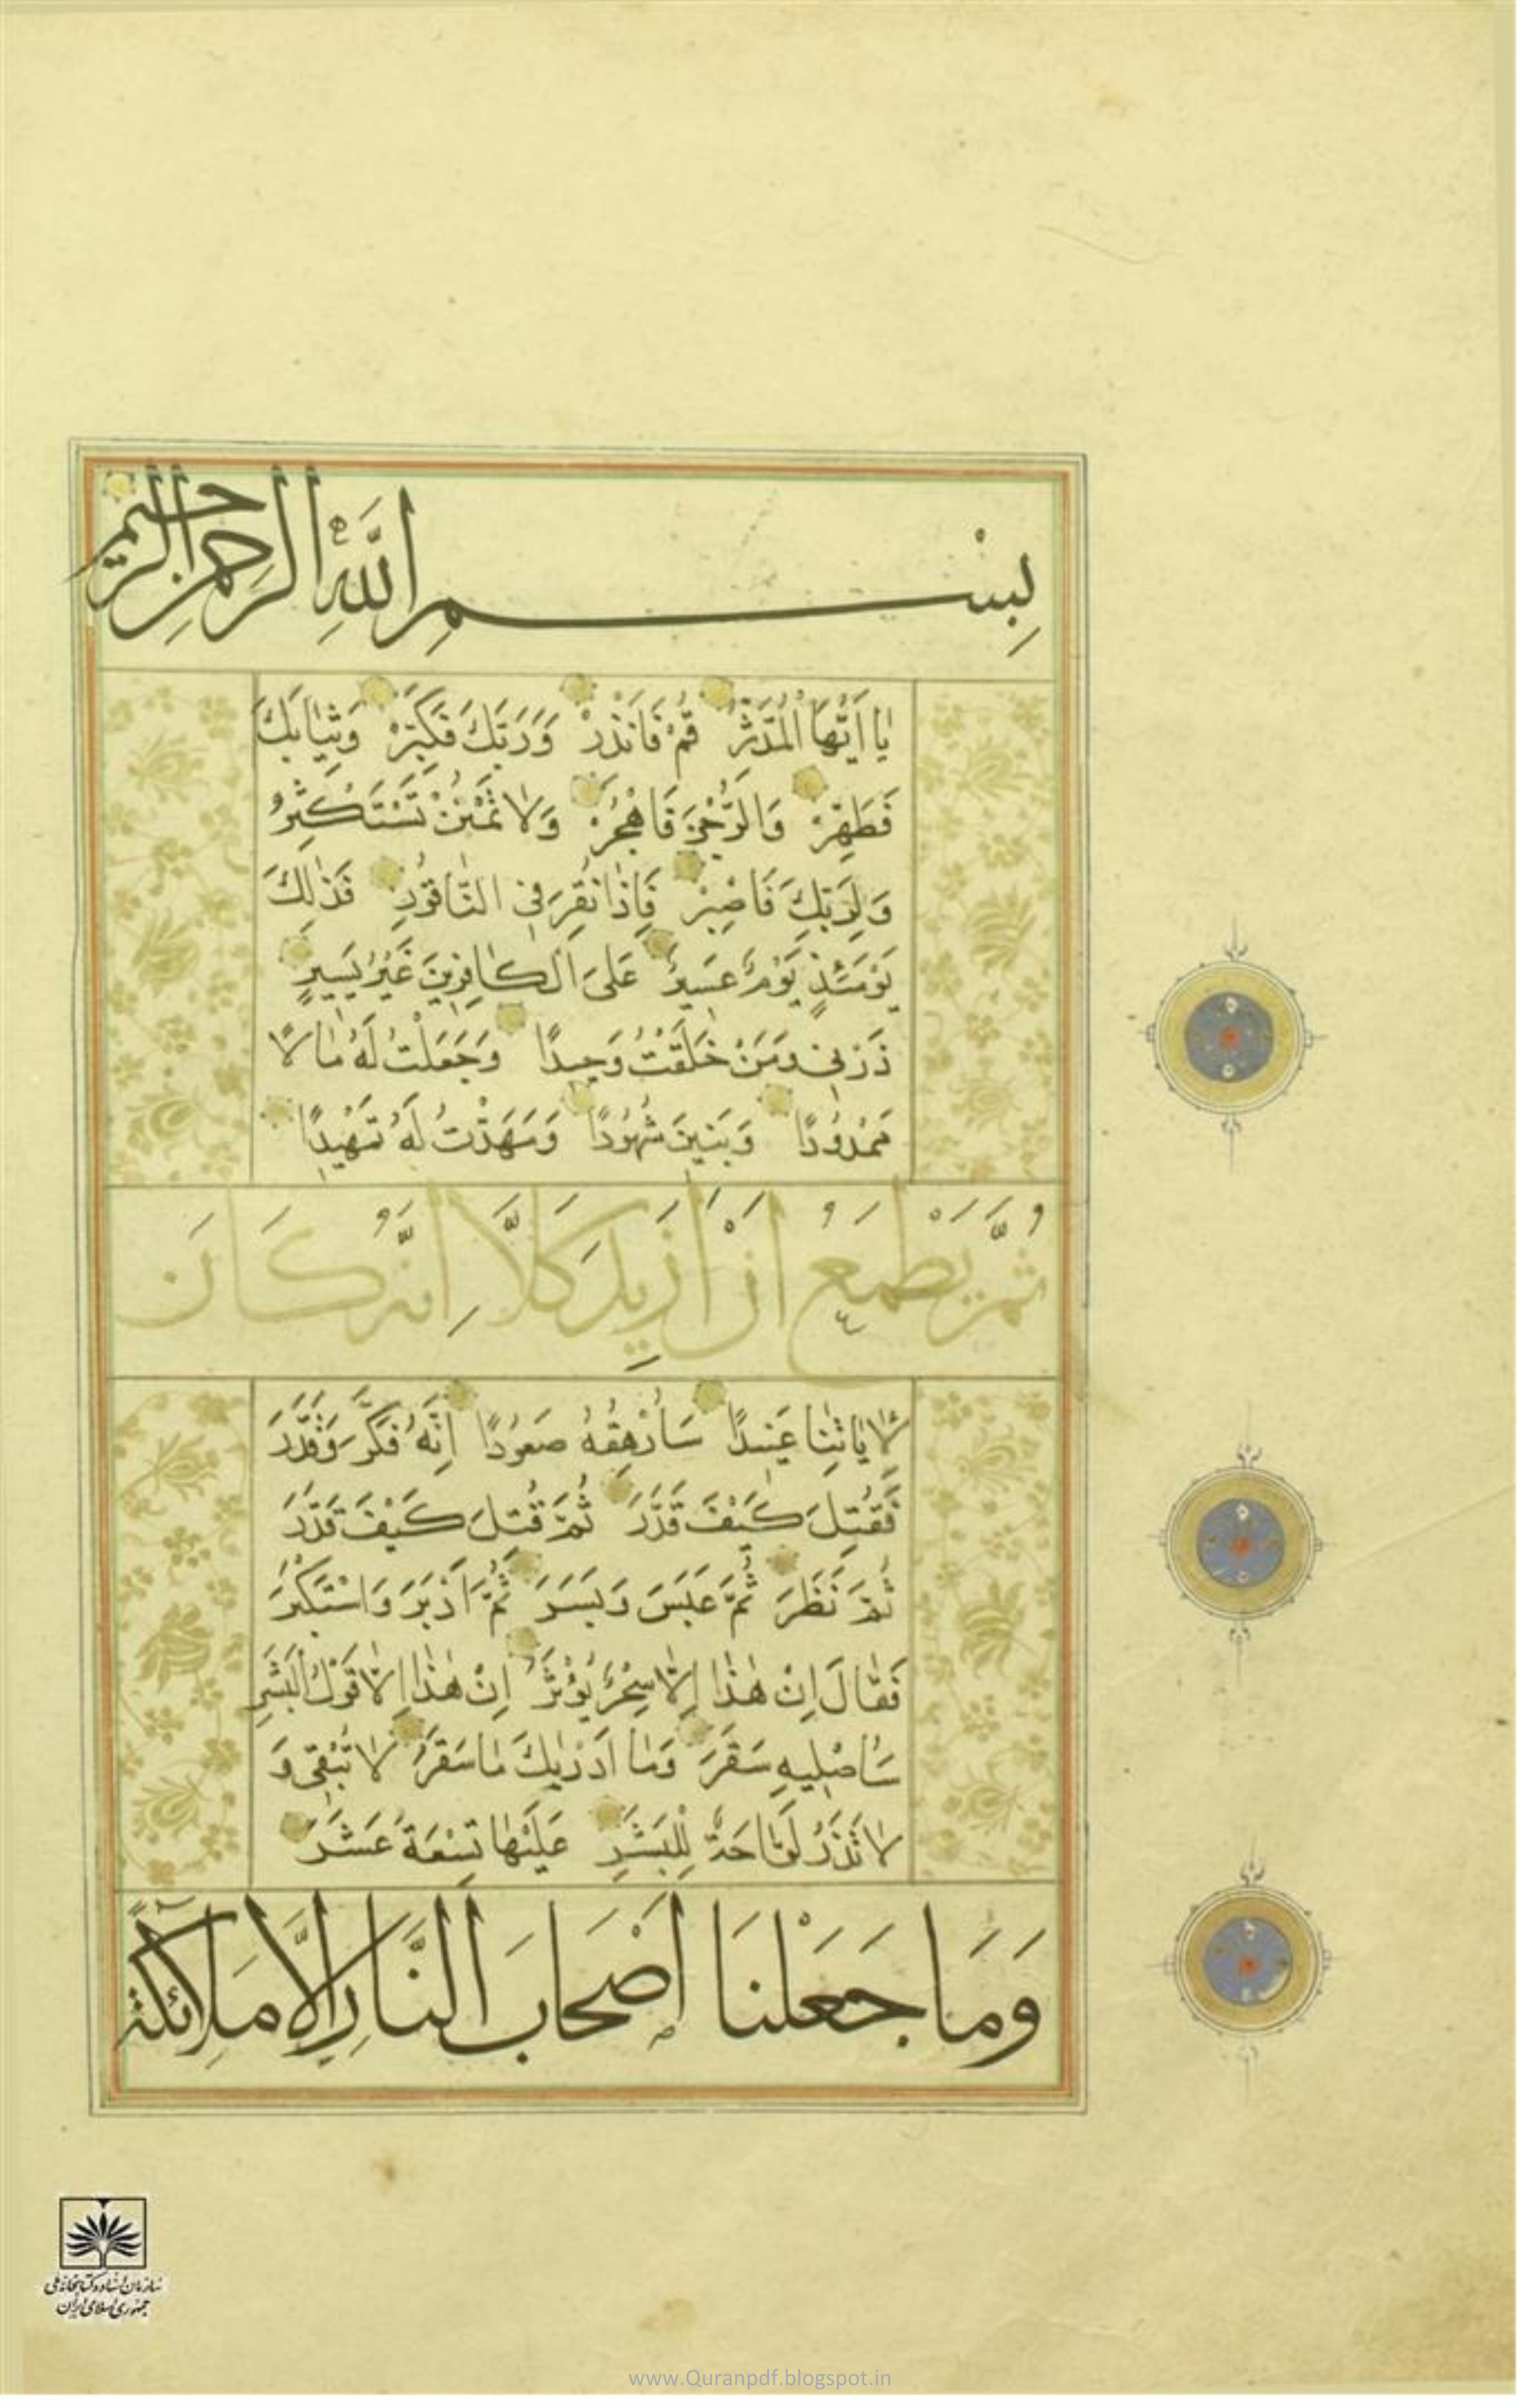 بِسْمِ اللَّهِ الرَّحْمٰنِ الرَّحِيمِ
يٰا اَيُّهَا الْمُدَّثِّرُ قُمْ فَاَنْذِرْ وَرَبَّكَ فَكَبِّرْ وَثِيٰابَكَ
فَطَهِّرْ وَالرُّجْزَ فَاهْجُرْ وَلٰا تَمْنُنْ تَسْتَكْثِرُ
وَلِرَبِّكَ فَاصْبِرْ فَاِذٰا نُقِرَ فِى النّٰاقُورِ فَذٰلِكَ
يَوْمَئِذٍ يَوْمٌ عَسِيرٌ عَلَى الْكٰافِرِينَ غَيْرُ يَسِيرٍ
ذَرْنِى وَمَنْ خَلَقْتُ وَحِيدًا وَجَعَلْتُ لَهُ مٰالًا
مَمْدُودًا وَبَنِينَ شُهُودًا وَمَهَّدْتُ لَهُ تَمْهِيدًا
ثُمَّ يَطْمَعُ اَنْ اَزِيدَ كَلَّا اِنَّهُ كَانَ
لِاٰيٰاتِنٰا عَنِيدًا سَاُرْهِقُهُ صَعُودًا اِنَّهُ فَكَّرَ وَقَدَّرَ
فَقُتِلَ كَيْفَ قَدَّرَ ثُمَّ قُتِلَ كَيْفَ قَدَّرَ
ثُمَّ نَظَرَ ثُمَّ عَبَسَ وَبَسَرَ ثُمَّ اَدْبَرَ وَاسْتَكْبَرَ
فَقٰالَ اِنْ هٰذٰا اِلّٰا سِحْرٌ يُؤْثَرُ اِنْ هٰذٰا اِلّٰا قَوْلُ الْبَشَرِ
سَاُصْلِيهِ سَقَرَ وَمٰا اَدْرٰيكَ مٰا سَقَرُ لٰا تُبْقِى وَ
لٰا تَذَرُ لَوّٰاحَةٌ لِلْبَشَرِ عَلَيْهٰا تِسْعَةَ عَشَرَ
وَمَا جَعَلْنَا اَصْحَابَ النَّارِ اِلَّا مَلَائِكَةً
سازمان اسناد و کتابخانه ملی
جمهوری اسلامی ایران
www.Quranpdf.blogspot.in